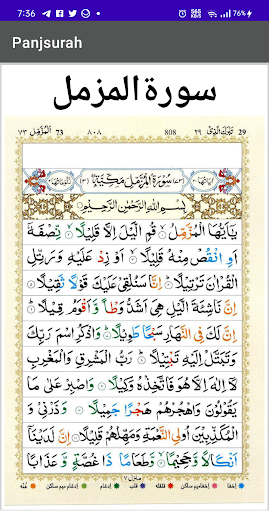 7:36
76%
Panjsurah
سورة المزمل
المزمل ٧٣ 73 ٨٠٨ 808 تبٰرك الذی ٢٩ 29
سُوْرَةُ الْمُزَّمِّلِ مَكِّيَّةٌ
بِسْمِ اللهِ الرَّحْمٰنِ الرَّحِيْمِ
يٰۤاَيُّهَا الْمُزَّمِّلُ ۝ قُمِ الَّيْلَ اِلَّا قَلِيْلًا ۝ نِّصْفَهٗۤ
اَوِ انْقُصْ مِنْهُ قَلِيْلًا ۝ اَوْ زِدْ عَلَيْهِ وَرَتِّلِ
الْقُرْاٰنَ تَرْتِيْلًا ۝ اِنَّا سَنُلْقِيْ عَلَيْكَ قَوْلًا ثَقِيْلًا ۝
اِنَّ نَاشِئَةَ الَّيْلِ هِيَ اَشَدُّ وَطْاً وَّاَقْوَمُ قِيْلًا ۝
اِنَّ لَكَ فِي النَّهَارِ سَبْحًا طَوِيْلًا ۝ وَاذْكُرِ اسْمَ رَبِّكَ
وَتَبَتَّلْ اِلَيْهِ تَبْتِيْلًا ۝ رَبُّ الْمَشْرِقِ وَالْمَغْرِبِ
لَاۤ اِلٰهَ اِلَّا هُوَ فَاتَّخِذْهُ وَكِيْلًا ۝ وَاصْبِرْ عَلٰى مَا
يَقُوْلُوْنَ وَاهْجُرْهُمْ هَجْرًا جَمِيْلًا ۝ وَذَرْنِيْ وَ
الْمُكَذِّبِيْنَ اُولِي النَّعْمَةِ وَمَهِّلْهُمْ قَلِيْلًا ۝ اِنَّ لَدَيْنَاۤ
اَنْكَالًا وَّجَحِيْمًا ۝ وَّطَعَامًا ذَا غُصَّةٍ وَّعَذَابًا
منزل ٧
اخفا اخفا میم ساکن قلقله قلب ادغام ادغام میم ساکن غنّه